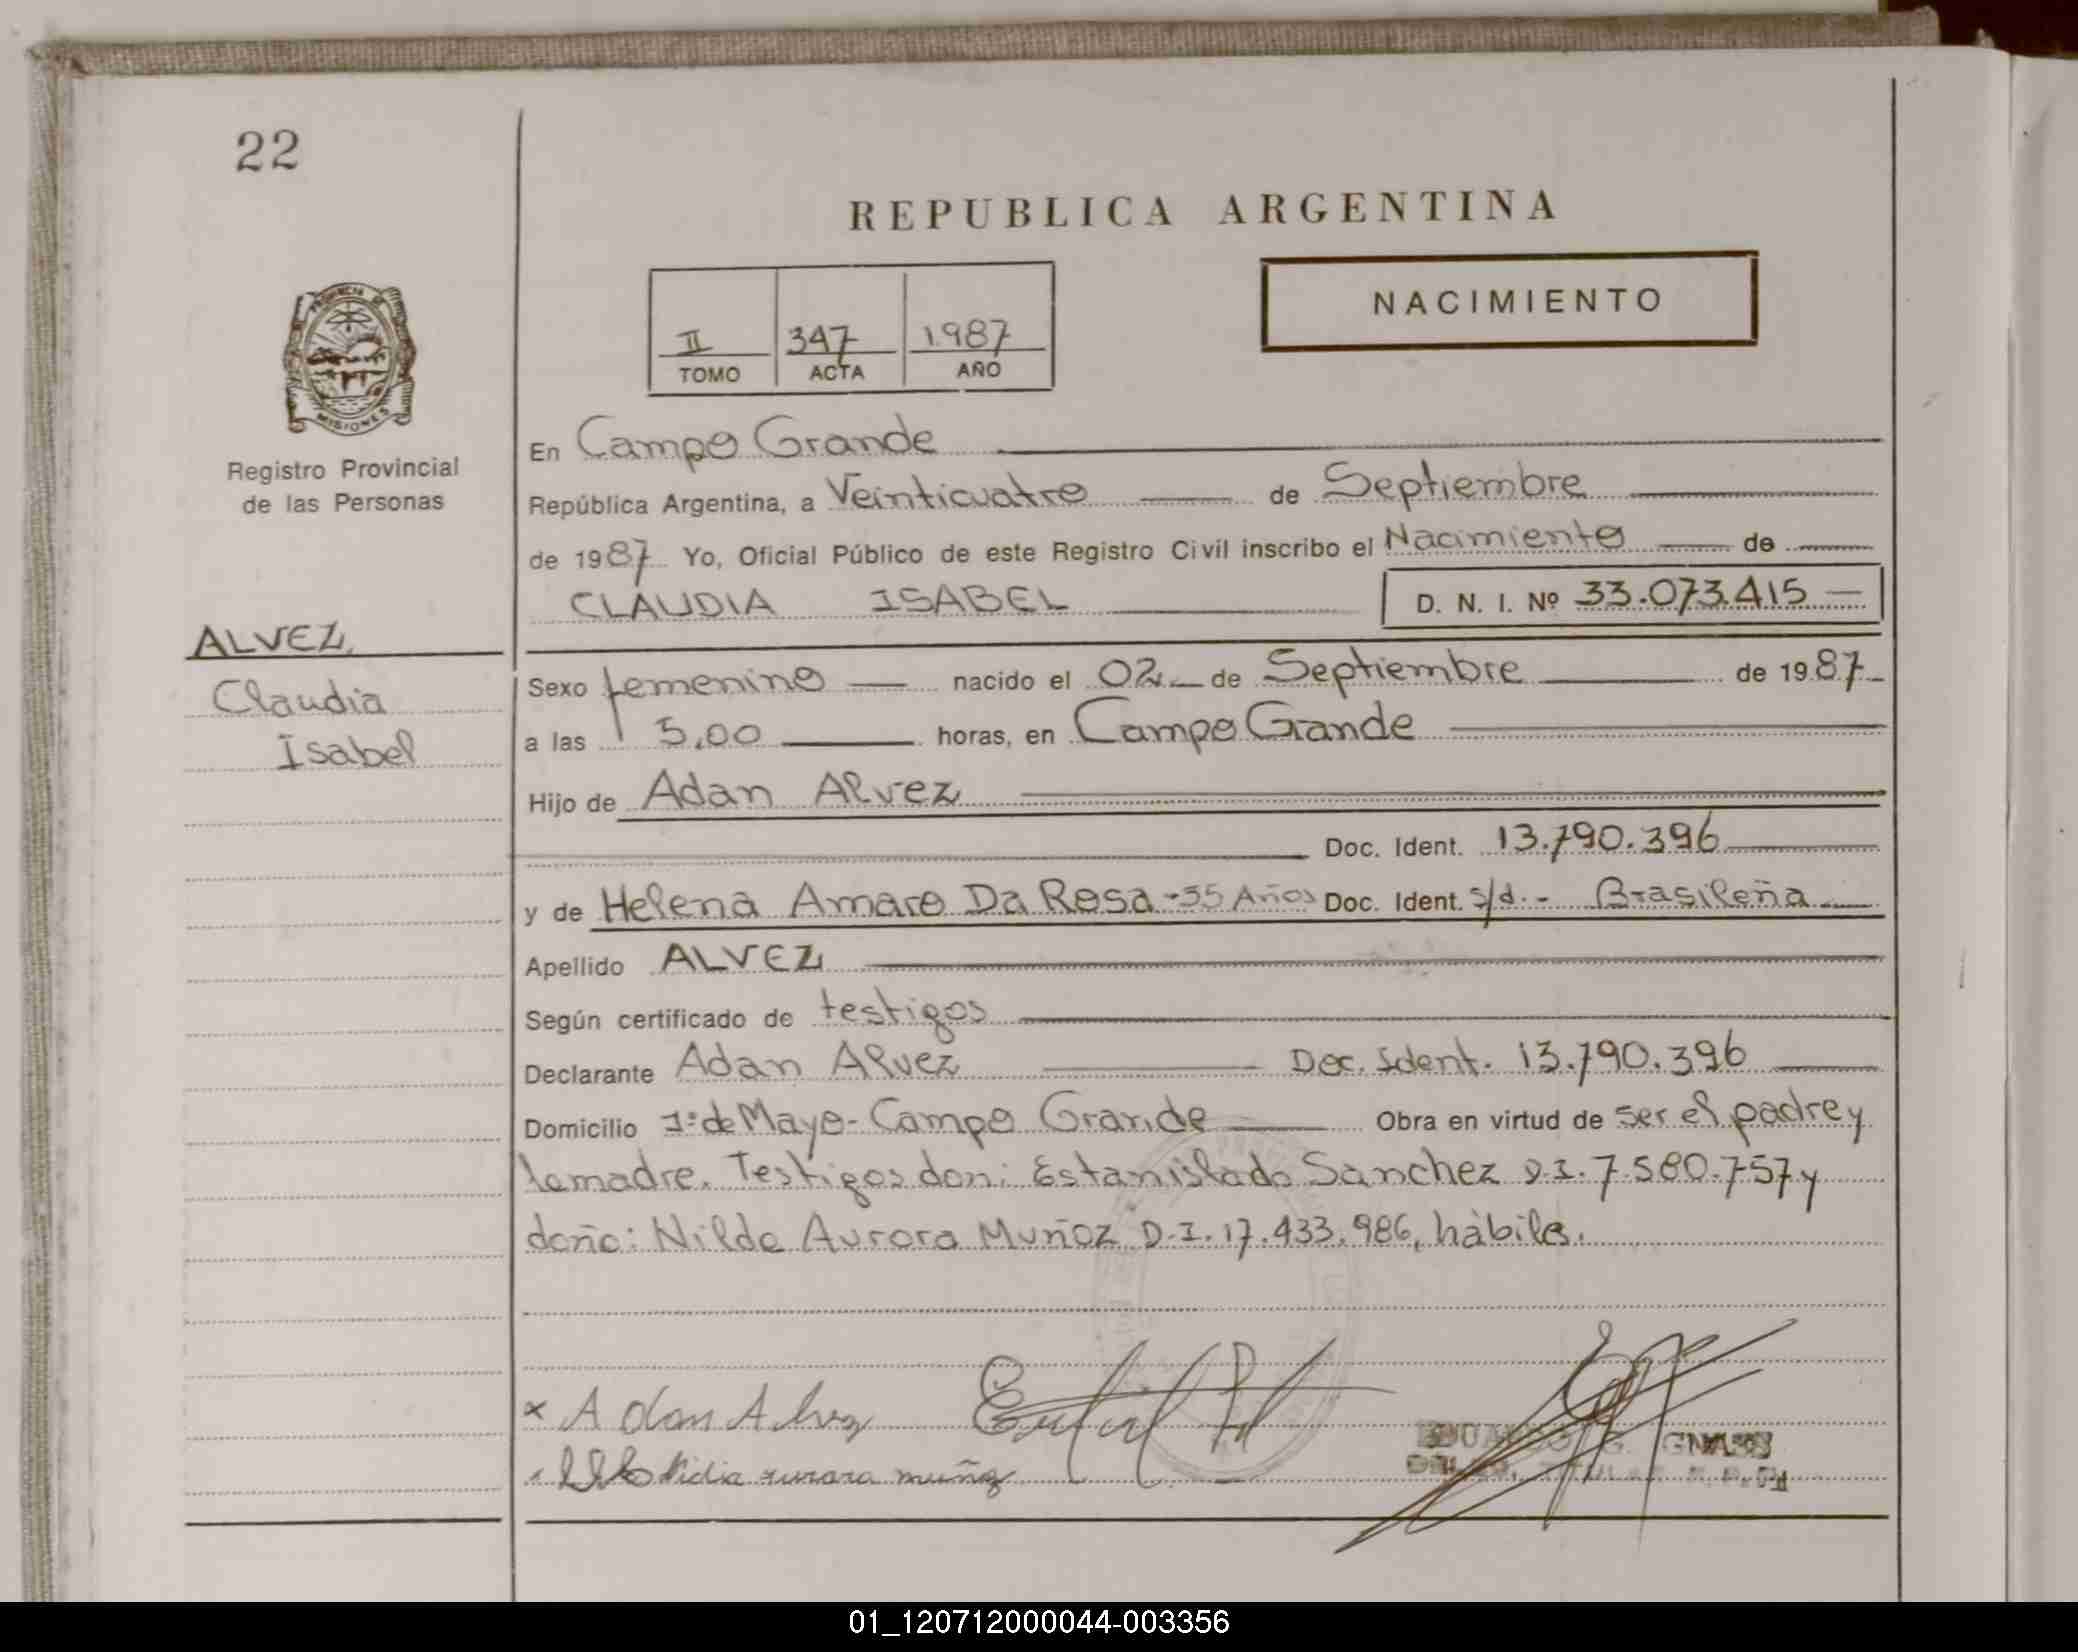 22
REPUBLICA ARGENTINA
NACIMIENTO
II 347 1987
TOMO ACTA AÑO
PROVINCIA DE MISIONES
Registro Provincial
de las Personas
En Campo Grande
República Argentina, a Veinticuatro de Septiembre
de 1987 Yo, Oficial Público de este Registro Civil inscribo el Nacimiento de
CLAUDIA ISABEL D. N. I. Nº 33.073.415
ALVEZ,
Claudia
Isabel
Sexo femenino nacido el 02 de Septiembre de 1987
a las 5,00 horas, en Campo Grande
Hijo de Adan Alvez
Doc. Ident. 13.790.396
y de Helena Amaro Da Rosa -35 Años Doc. Ident. s/d.- Brasileña
Apellido ALVEZ
Según certificado de testigos
Declarante Adan Alvez Doc. Ident. 13.790.396
Domicilio 1º de Mayo - Campo Grande Obra en virtud de ser el padre y
la madre. Testigos don: Estanislado Sanchez D.I. 7.580.757 y
doña: Nilda Aurora Muñoz D.I. 17.433.986, hàbiles.
x Adan Alvez
Nidia aurora muñoz
01_120712000044-003356